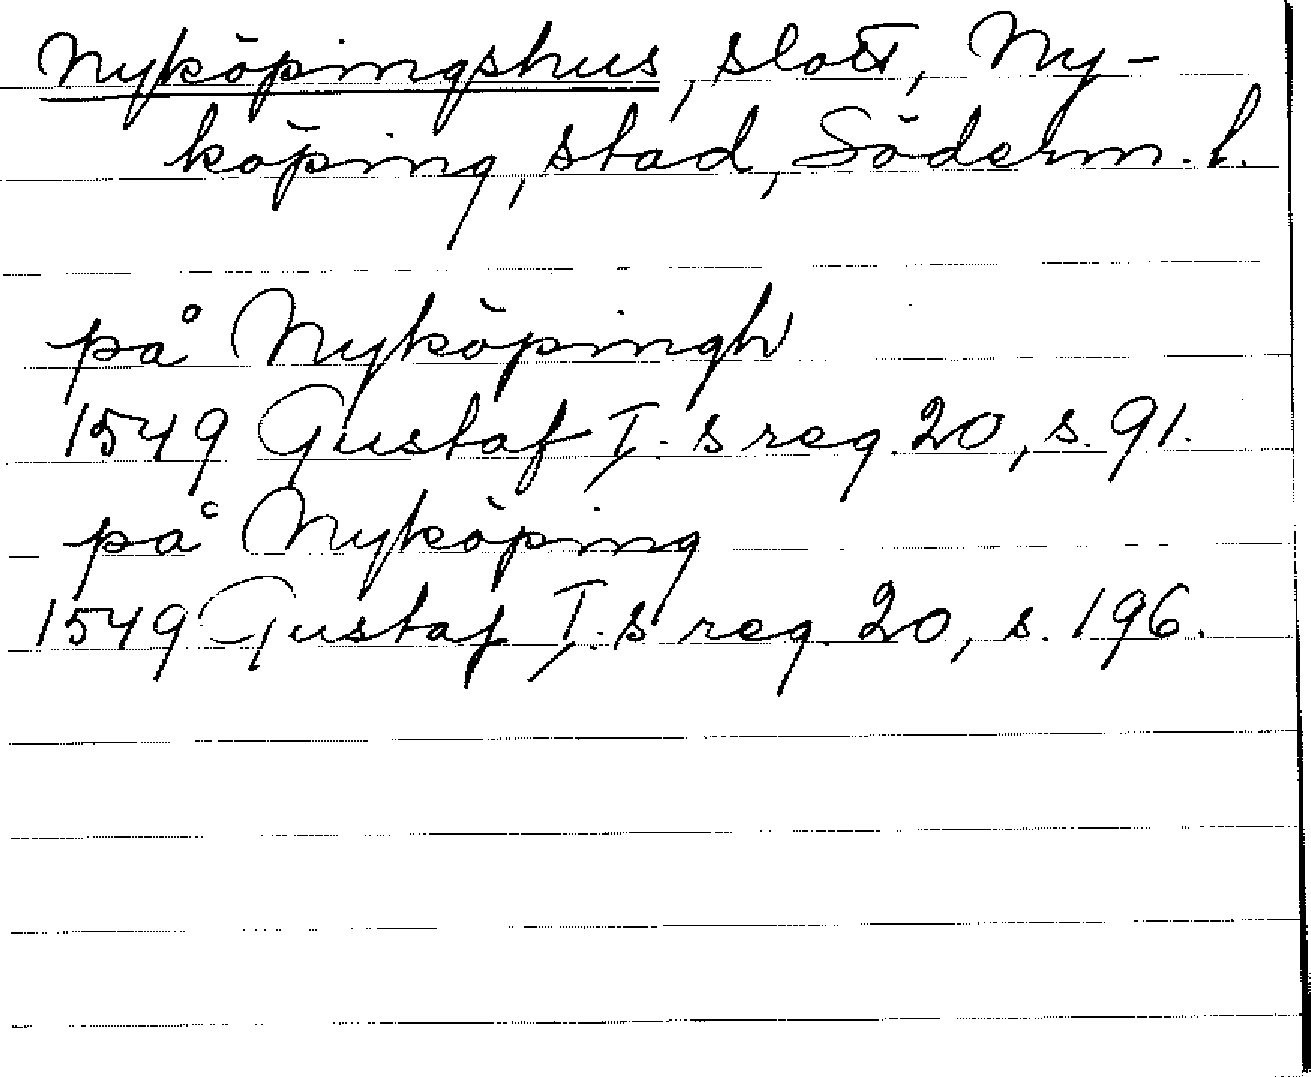 Nyköpingshus, slott, Ny-
köping, stad, Söderm. l.
på Nyköpingh
1549 Gustaf I.s reg. 20, s. 91.
på Nyköping
1549 Gustaf I.s reg. 20, s. 196.